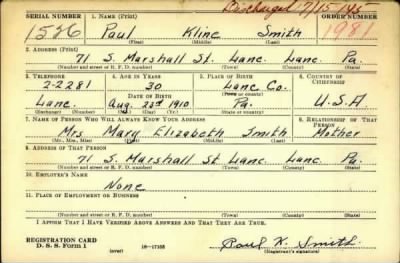 Discharged 7/15/45
SERIAL NUMBER 1. NAME (Print) ORDER NUMBER
1526 Paul Kline Smith 1981
(First) (Middle) (Last)
2. ADDRESS (Print)
71 S. Marshall St. Lanc. Lanc. Pa.
(Number and street or R. F. D. number) (Town) (County) (State)
3. TELEPHONE 4. AGE IN YEARS 5. PLACE OF BIRTH 6. COUNTRY OF CITIZENSHIP
2-2281 30 Lanc Co.
DATE OF BIRTH (Town or county)
Lanc. Aug. 23d 1910 Pa. U.S.A
(Exchange) (Number) (Mo.) (Day) (Yr.) (State or country)
7. NAME OF PERSON WHO WILL ALWAYS KNOW YOUR ADDRESS 8. RELATIONSHIP OF THAT PERSON
Mrs Mary Elizabeth Smith Mother
(Mr., Mrs., Miss) (First) (Middle) (Last)
9. ADDRESS OF THAT PERSON
71 S. Marshall St Lanc Lanc Pa.
(Number and street or R. F. D. number) (Town) (County) (State)
10. EMPLOYER'S NAME
None
11. PLACE OF EMPLOYMENT OR BUSINESS
(Number and street or R. F. D. number) (Town) (County) (State)
I AFFIRM THAT I HAVE VERIFIED ABOVE ANSWERS AND THAT THEY ARE TRUE.
REGISTRATION CARD
D. S. S. Form 1 (over) 16-17105 Paul K. Smith
(Registrant's signature)